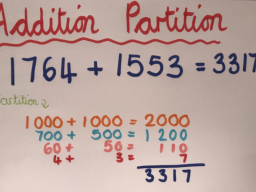 Addition Partition
1764 + 1553 = 3317
Partition
1000 + 1000 = 2000
700 + 500 = 1200
60 + 50 = 110
4 + 3 = 7
3317